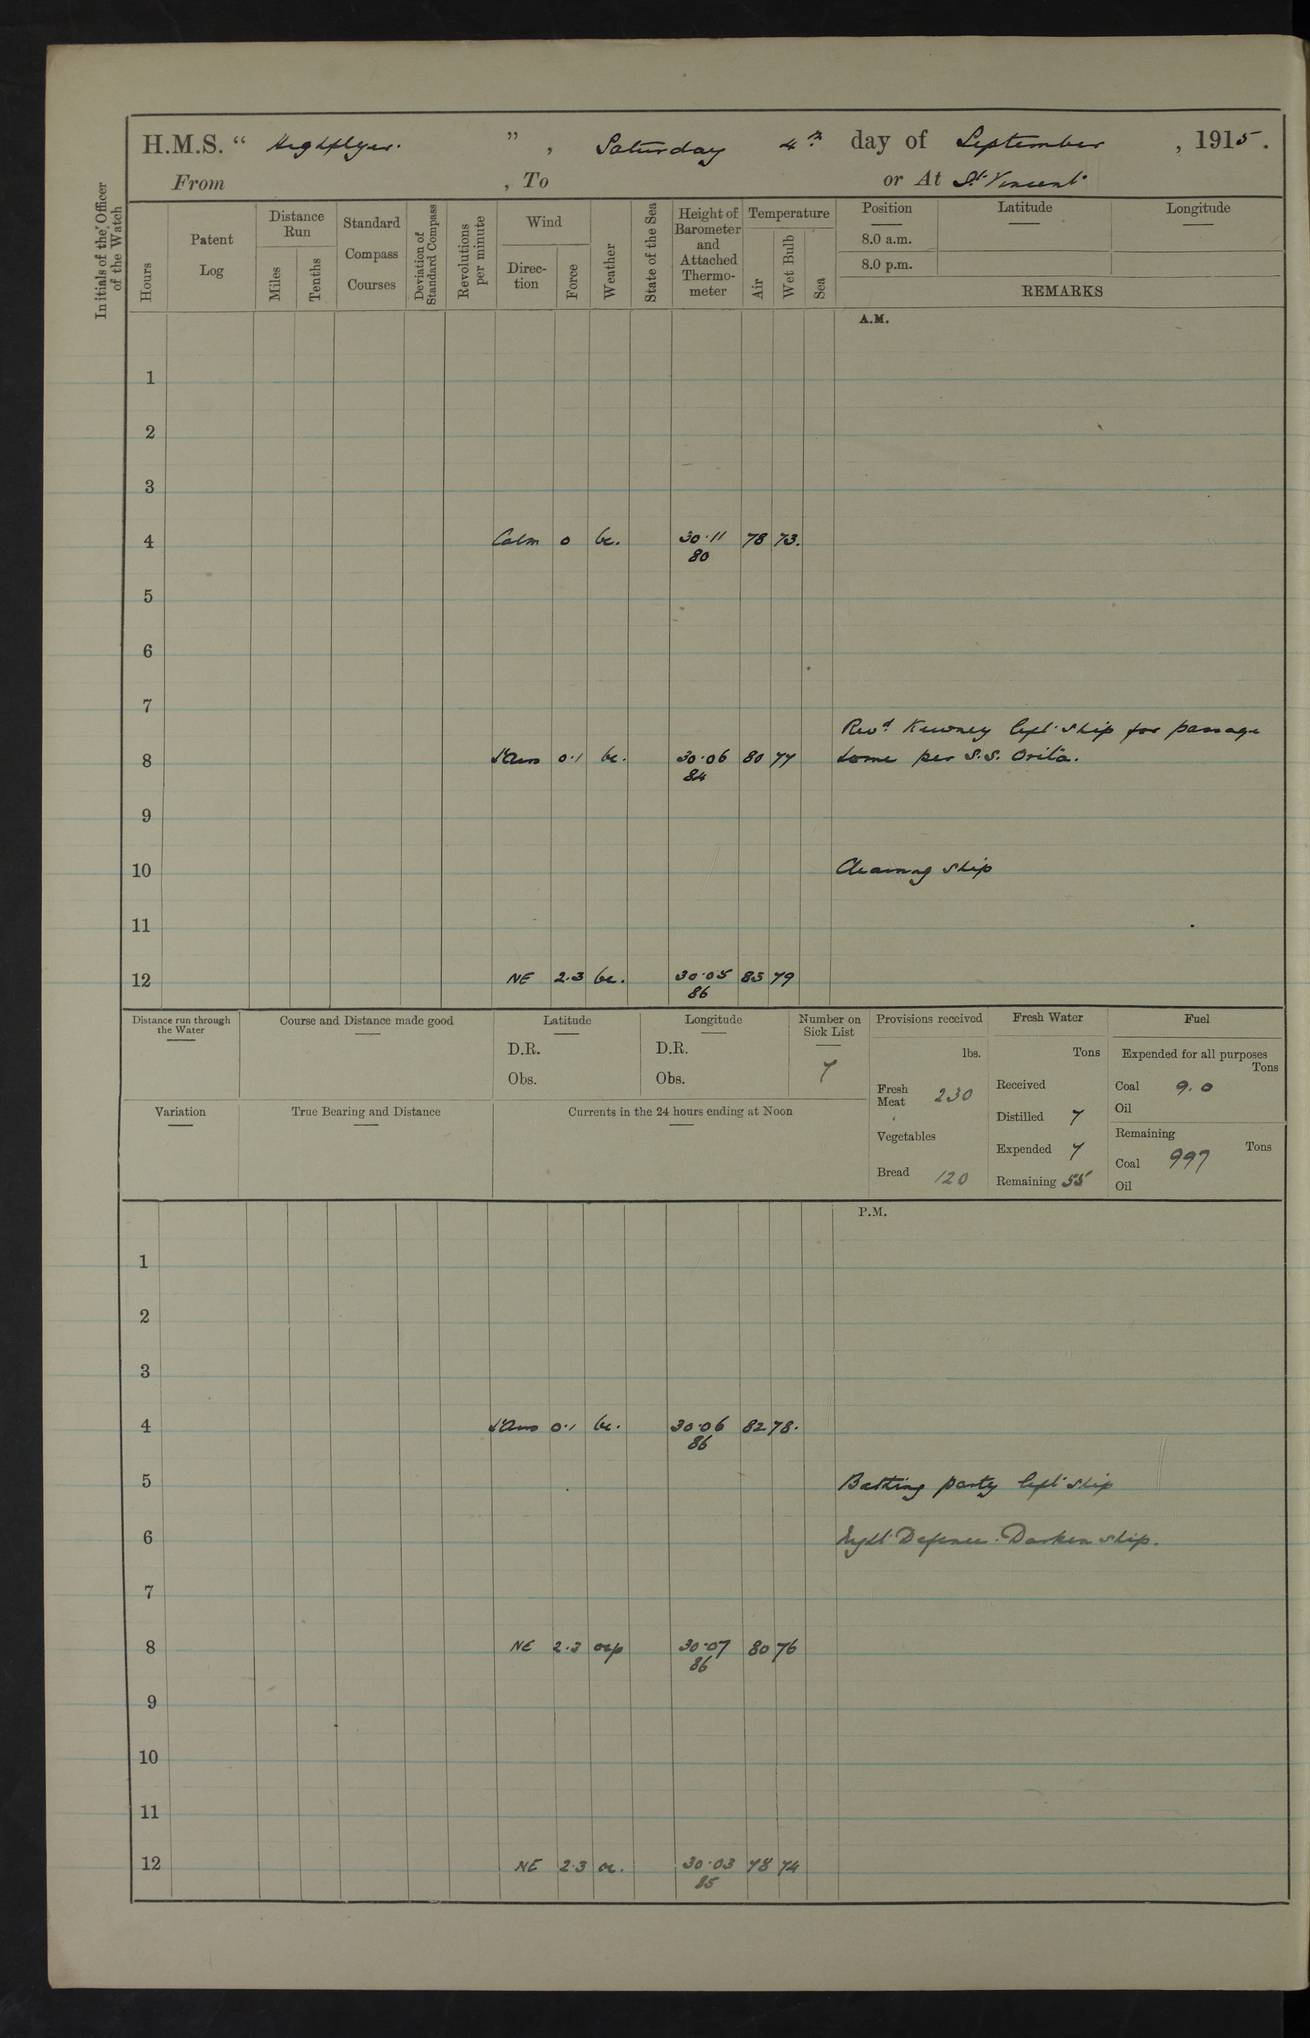 H.M.S. “ Highflyer. ” , Saturday 4th day of September , 1915.
From , To or At St. Vincent
Initials of the Officer of the Watch
Hours
Patent Log
Distance Run
Miles
Tenths
Standard Compass Courses
Deviation of Standard Compass
Revolutions per minute
Wind
Direction
Force
Weather
State of the Sea
Height of Barometer and Attached Thermometer
Temperature
Air
Wet Bulb
Sea
Position Latitude Longitude
8.0 a.m.
8.0 p.m.
REMARKS
A.M.
1
2
3
4 Calm 0 bc. 30·11 78 73.
80
5
6
7
Revd Kewney left ship for passage
8 0·1 bc. 30·06 80 77 home per S.S. Orita.
84
9
10 Cleaning ship
11
12 NE 2·3 bc. 30·05 83 79
86
Distance run through the Water
Course and Distance made good
Latitude
D.R.
Obs.
Longitude
D.R.
Obs.
Number on Sick List
7
Provisions received
lbs.
Fresh Meat 230
Vegetables
Bread 120
Fresh Water
Tons
Received
Distilled 7
Expended 7
Remaining 55
Fuel
Expended for all purposes
Tons
Coal 9.0
Oil
Remaining
Tons
Coal 997
Oil
Variation
True Bearing and Distance
Currents in the 24 hours ending at Noon
P.M.
1
2
3
4 0·1 bc. 30·06 82 78.
86
5 Bathing party left ship
6 Night Defence. Darken ship.
7
8 NE 2·3 ocp 30·07 80 76
86
9
10
11
12 NE 2·3 oc. 30·03 78 74
85